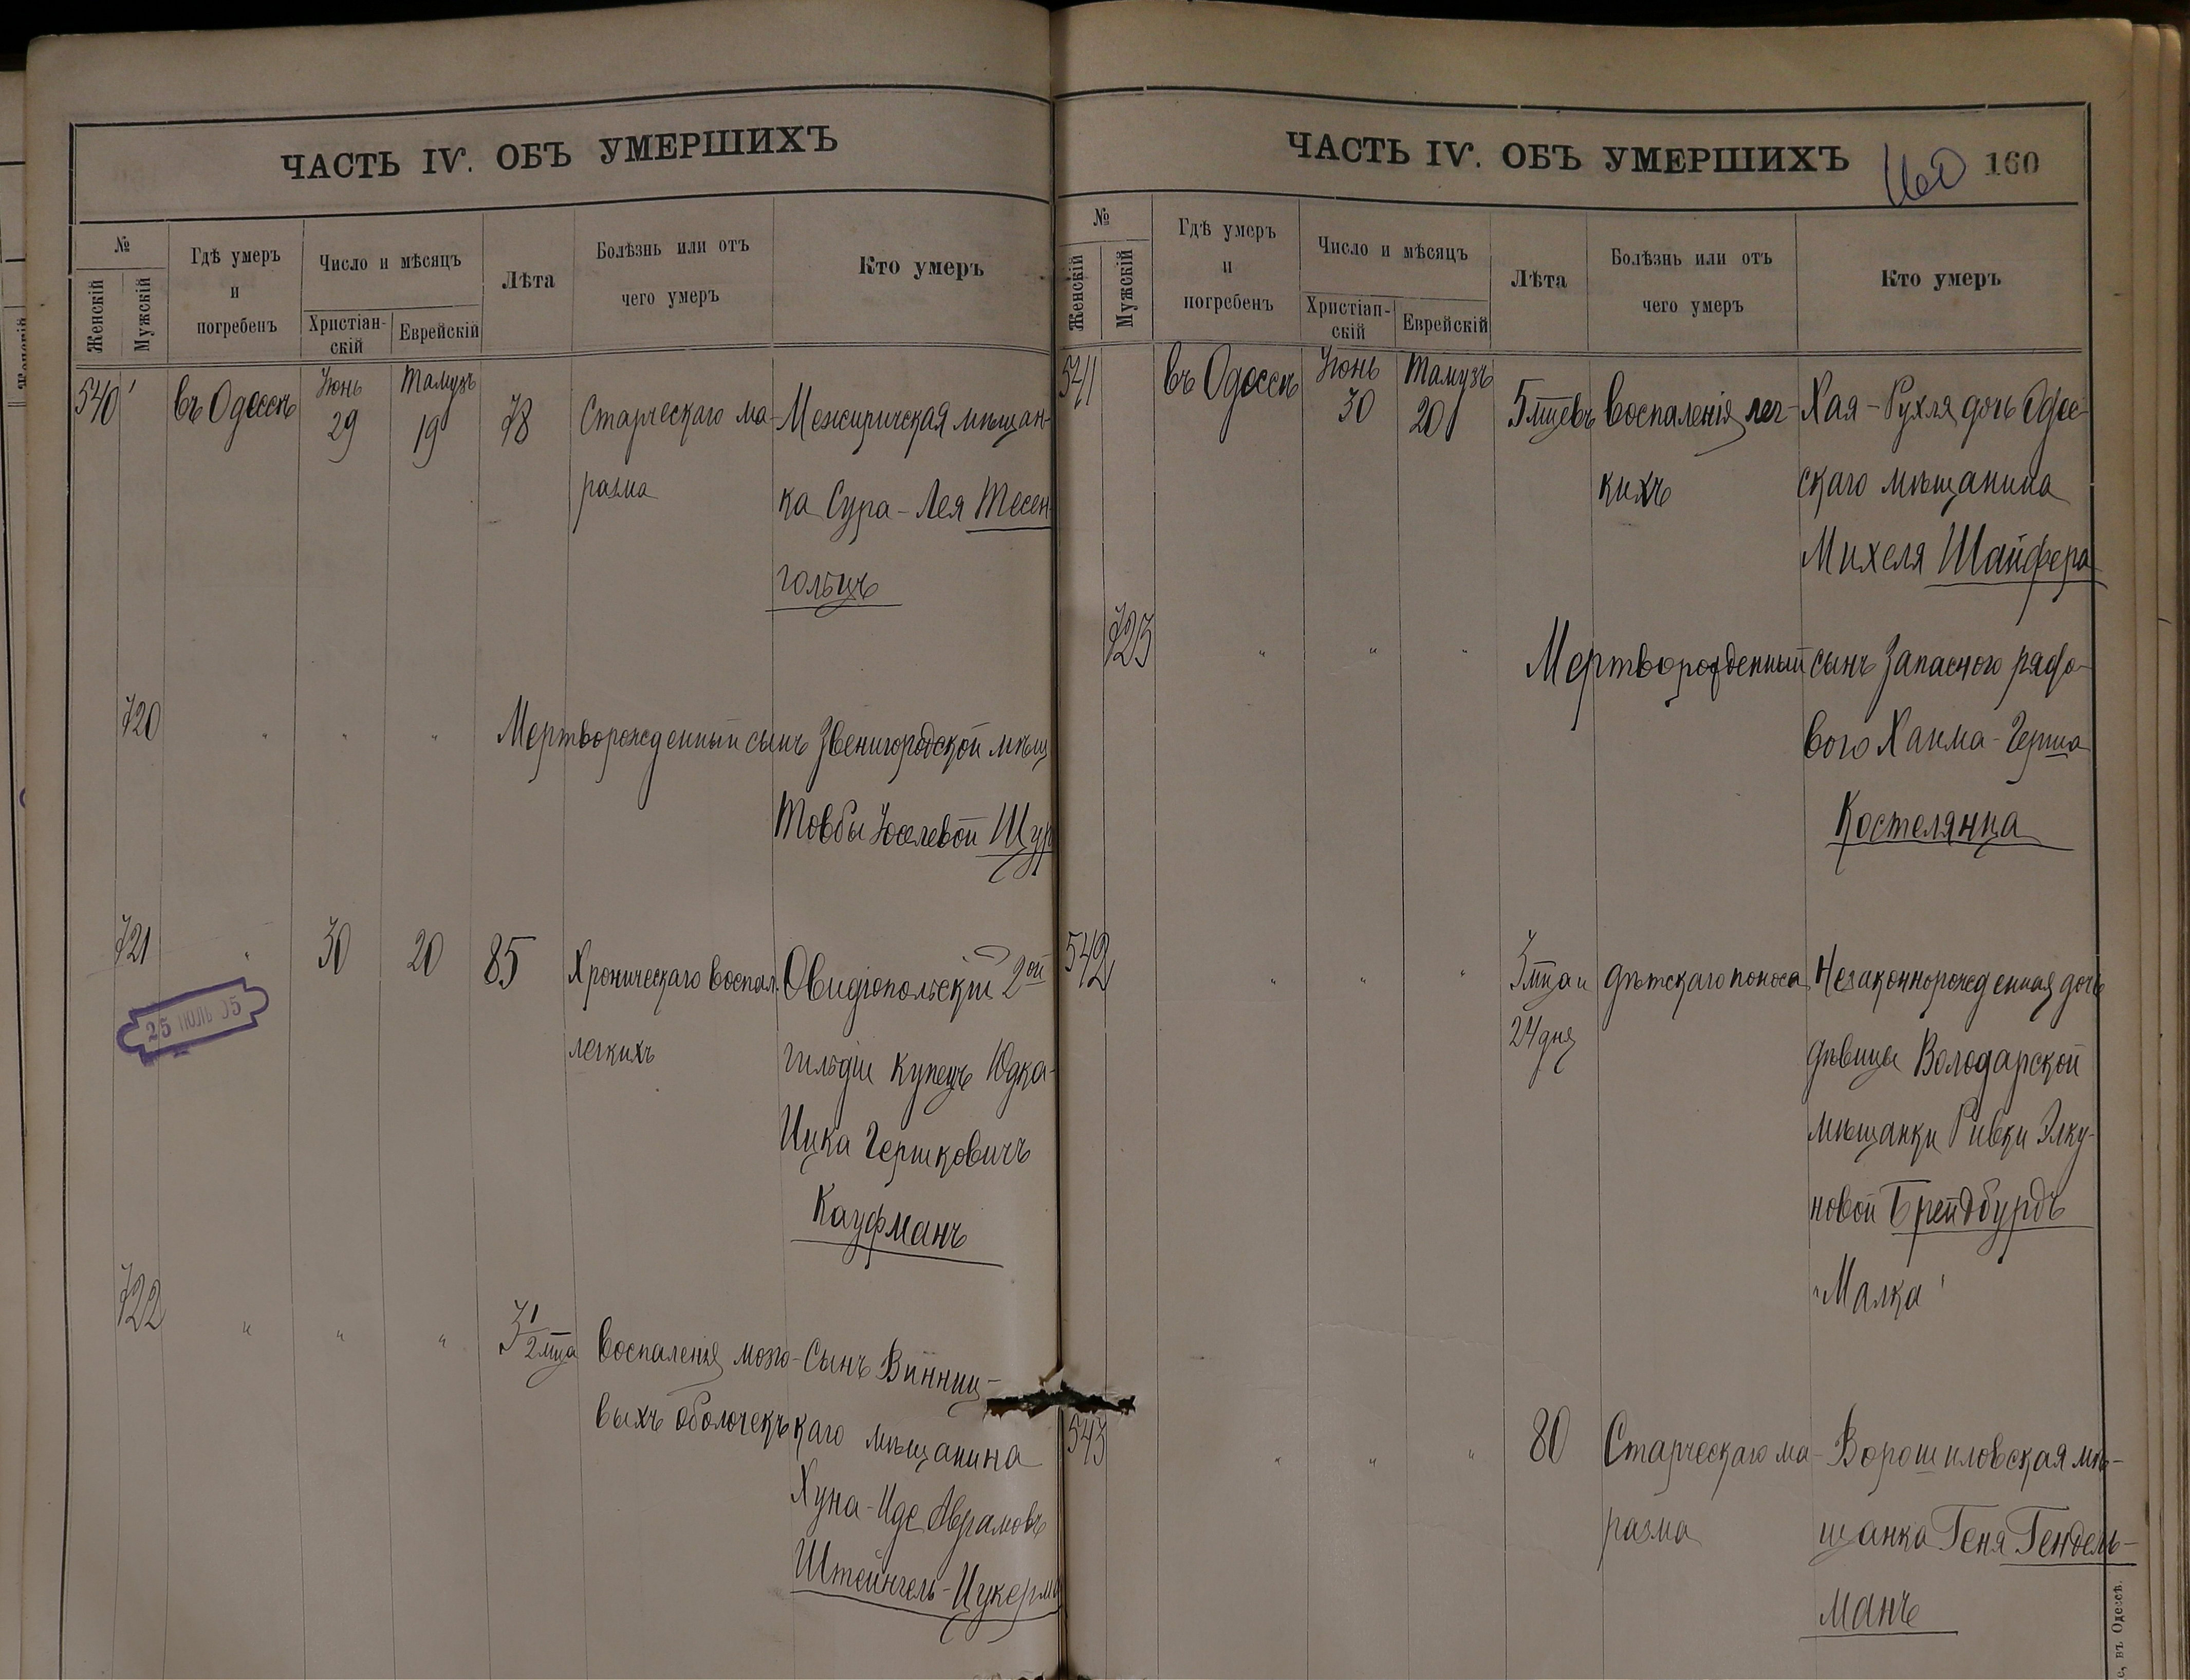 ЧАСТЬ IV. ОБЪ УМЕРШИХЪ
№
Женскій
Мужскій
Гдѣ умеръ
и
погребенъ
Число и мѣсяцъ
Христіан-
скій
Еврейскій
Лѣта
Болѣзнь или отъ
чего умеръ
Кто умеръ
540
въ Одессѣ
Іюнь
29
Тамузъ
19
78
Старческаго ма-
разма
Межиричская мѣщан-
ка Сура-Лея Тесен
гольцъ
720
" " "
Мертворожденный сынъ Звенигородской мѣщ
Товбы Іоселевой Щур
721
"
30
20
85
Хроническаго воспал.
легкихъ
Овидіопольскій 2ой
гильдіи купецъ Юдка-
Ицка Гершковичъ
Кауфманъ
25 ІЮЛЬ 95
722
" " "
3 1/2 мца
Воспаленія мозго-
выхъ оболочекъ
Сынъ Винниц-
каго мѣщанина
Хуна-Иде Аврамовъ
Штейнгель-Цукерма
ЧАСТЬ IV. ОБЪ УМЕРШИХЪ
160
160
№
Женскій
Мужскій
Гдѣ умеръ
и
погребенъ
Число и мѣсяцъ
Христіан-
скій
Еврейскій
Лѣта
Болѣзнь или отъ
чего умеръ
Кто умеръ
541
въ Одессѣ
Іюнь
30
Тамузъ
20
5 мцевъ
Воспаленія лег-
кихъ
Хая-Рухля дочь Одес-
скаго мѣщанина
Михеля Шайфера
723
" " "
Мертворожденный сынъ Запасного рядо-
вого Хаима-Герша
Костелянца
542
" " "
3 мца и
24 дня
Дѣтскаго поноса
Незаконнорожденная дочь
дѣвицы Володарской
мѣщанки Ривки Элку-
новой Брейдбурдъ
"Малка"
543
" " "
80
Старческаго ма-
разма
Ворошиловская мѣ-
щанка Геня Гендель-
манъ
с, въ Одессѣ.